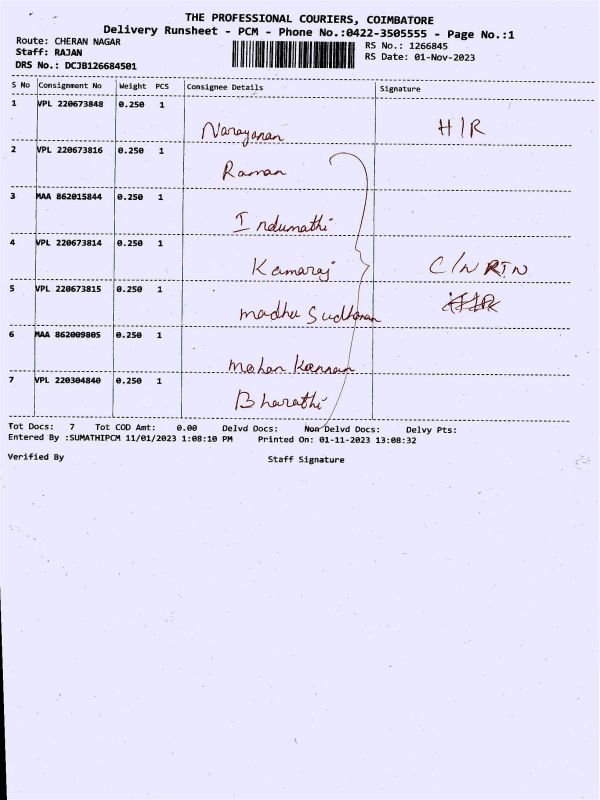 THE PROFESSIONAL COURIERS, COIMBATORE
Delivery Runsheet - PCM - Phone No.:0422-3505555 - Page No.:1
Route: CHERAN NAGAR RS No.: 1266845
Staff: RAJAN RS Date: 01-Nov-2023
DRS No.: DCJB126684501
S No Consignment No Weight PCS Consignee Details Signature
1 VPL 220673848 0.250 1
Narayanan H/R
2 VPL 220673816 0.250 1
Raman
3 MAA 862015844 0.250 1
Indumathi
4 VPL 220673814 0.250 1
Kamaraj C/N RTN
5 VPL 220673815 0.250 1
madhu Sudhanan
6 MAA 862009805 0.250 1
mohan Kannan
7 VPL 220304840 0.250 1
Bharathi
Tot Docs: 7 Tot COD Amt: 0.00 Delvd Docs: Non Delvd Docs: Delvy Pts:
Entered By :SUMATHIPCM 11/01/2023 1:08:10 PM Printed On: 01-11-2023 13:08:32
Verified By Staff Signature